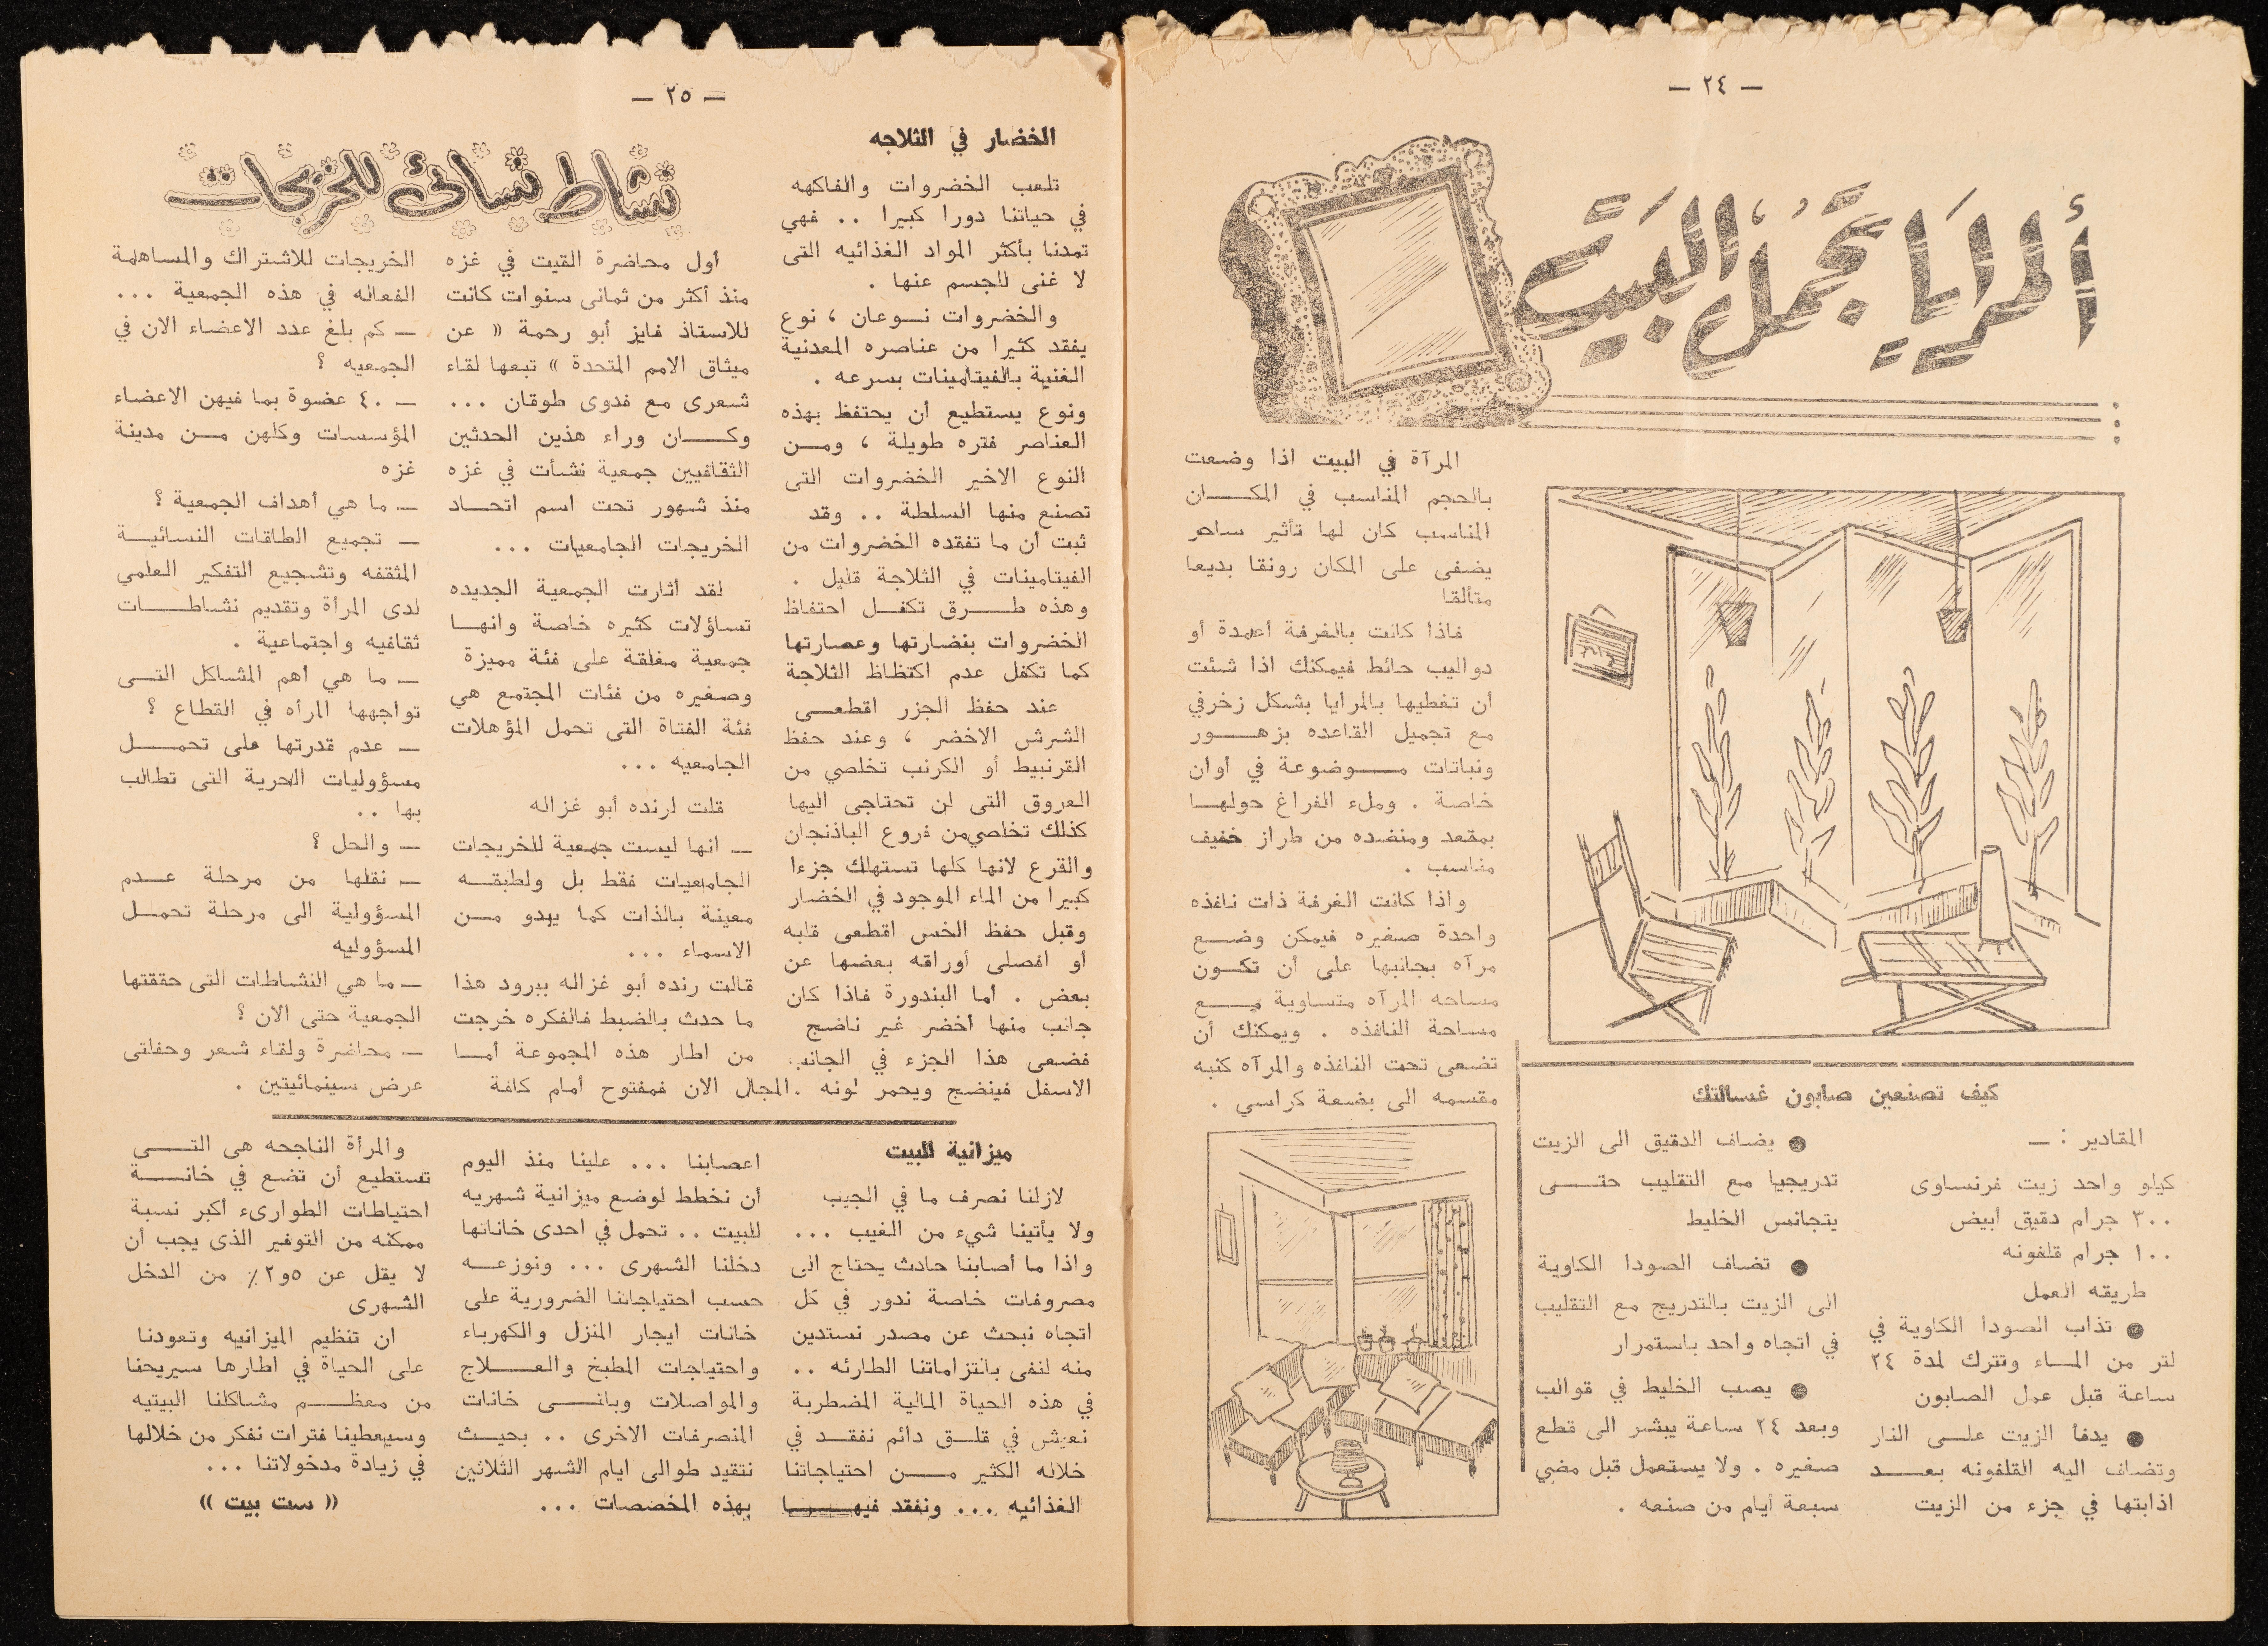 — ٢٤ —
ألمرايا تجمل البيت
المرآة في البيت اذا وضعت
بالحجم المناسب في المكـــان
المناسب كان لها تأثير ساحر
يضفى على المكان رونقا بديعا
متألقا
فاذا كانت بالغرفة أعمدة أو
دواليب حائط فيمكنك اذا شئت
أن تغطيها بالمرايا بشكل زخرفي
مع تجميل القاعده بزهـــور
ونباتات مـــوضوعة في أوان
خاصة . وملء الفراغ حولهـا
بمقعد ومنضده من طراز خفيف
مناسب .
واذا كانت الغرفة ذات نافذه
واحدة صغيره فيمكن وضــع
مرآه بجانبها على أن تكــون
مساحه المرآه متساوية مــع
مساحة النافذه . ويمكنك أن
تضعى تحت النافذه والمرآه كنبه
مقسمه الى بضعة كراسي .
كيف تصنعين صابون غسالتك
المقادير : —
كيلو واحد زيت فرنساوى
٣٠٠ جرام دقيق أبيض
١٠٠ جرام قلفونه
طريقه العمل
● تذاب الصودا الكاوية في
لتر من المــاء وتترك لمدة ٢٤
ساعة قبل عمل الصابون
● يدفأ الزيت علــى النار
وتضاف اليه القلفونه بعـــد
اذابتها في جزء من الزيت
● يضاف الدقيق الى الزيت
تدريجيا مع التقليب حتـــى
يتجانس الخليط
● تضاف الصودا الكاوية
الى الزيت بالتدريج مع التقليب
في اتجاه واحد باستمرار
● يصب الخليط في قوالب
وبعد ٢٤ ساعة يبشر الى قطع
صغيره . ولا يستعمل قبل مضي
سبعة أيام من صنعه .
— ٢٥ —
الخضار في الثلاجه
تلعب الخضروات والفاكهه
في حياتنا دورا كبيرا .. فهي
تمدنا بأكثر المواد الغذائيه التى
لا غنى للجسم عنها .
والخضروات نــوعان ، نوع
يفقد كثيرا من عناصره المعدنية
الغنية بالفيتامينات بسرعه .
ونوع يستطيع أن يحتفظ بهذه
العناصر فتره طويلة ، ومــن
النوع الاخير الخضروات التى
تصنع منها السلطة .. وقد
ثبت أن ما تفقده الخضروات من
الفيتامينات في الثلاجة قليل .
وهذه طـــرق تكفــل احتفاظ
الخضروات بنضارتها وعصارتها
كما تكفل عدم اكتظاظ الثلاجة
عند حفظ الجزر اقطعــى
الشرش الاخضر ، وعند حفظ
القرنبيط أو الكرنب تخلصي من
العروق التى لن تحتاجى اليها
كذلك تخلصي من فروع الباذنجان
والقرع لانها كلها تستهلك جزءا
كبيرا من الماء الموجود في الخضار
وقبل حفظ الخس اقطعى قلبه
أو افصلى أوراقه بعضها عن
بعض . أما البندورة فاذا كان
جانب منها أخضر غير ناضج
فضعى هذا الجزء في الجانب
الاسفل فينضج ويحمر لونه .
نشاط نسائي للخريجات
أول محاضرة القيت في غزه
منذ أكثر من ثمانى سنوات كانت
للاستاذ فايز أبو رحمة « عن
ميثاق الامم المتحدة » تبعها لقاء
شعرى مع فدوى طوقان ...
وكـــان وراء هذين الحدثين
الثقافيين جمعية نشأت في غزه
منذ شهور تحت اسم اتحــاد
الخريجات الجامعيات ...
لقد أثارت الجمعية الجديده
تساؤلات كثيره خاصة وانهــا
جمعية مغلقة على فئة مميزة
وصغيره من فئات المجتمع هي
فئة الفتاة التى تحمل المؤهلات
الجامعيه ...
قلت لرنده أبو غزاله
— انها ليست جمعية للخريجات
الجامعيات فقط بل ولطبقــه
معينة بالذات كما يبدو مــن
الاسماء ...
قالت رنده أبو غزاله ببرود هذا
ما حدث بالضبط فالفكره خرجت
من اطار هذه المجموعة أمــا
المجال الان فمفتوح أمام كافة
الخريجات للاشتراك والمساهمة
الفعاله في هذه الجمعية ...
— كم بلغ عدد الاعضاء الان في
الجمعيه ؟
— ٤٠ عضوة بما فيهن الاعضاء
المؤسسات وكلهن مــن مدينة
غزه
— ما هي أهداف الجمعية ؟
— تجميع الطاقات النسائيــة
المثقفه وتشجيع التفكير العلمي
لدى المرأة وتقديم نشاطـــات
ثقافيه واجتماعية .
— ما هي أهم المشاكل التــى
تواجهها المرأه في القطاع ؟
— عدم قدرتها على تحمـــل
مسؤوليات الحرية التى تطالب
بها ..
— والحل ؟
— نقلها من مرحلة عــدم
المسؤولية الى مرحلة تحمــل
المسؤوليه
— ما هي النشاطات التى حققتها
الجمعية حتى الان ؟
— محاضرة ولقاء شعر وحفلتى
عرض سينمائيتين .
ميزانية للبيت
لازلنا نصرف ما في الجيب
ولا يأتينا شيء من الغيب ...
واذا ما أصابنا حادث يحتاج الى
مصروفات خاصة ندور في كل
اتجاه نبحث عن مصدر نستدين
منه لنفى بالتزاماتنا الطارئه ..
في هذه الحياة المالية المضطربة
نعيش في قلــق دائم نفقــد في
خلاله الكثير مـــن احتياجاتنا
الغذائيه ... ونفقد فيهـــا
اعصابنا ... علينا منذ اليوم
أن نخطط لوضع ميزانية شهريه
للبيت .. تحمل في احدى خاناتها
دخلنا الشهرى ... ونوزعــه
حسب احتياجاتنا الضرورية على
خانات ايجار المنزل والكهرباء
واحتياجات المطبخ والعـــلاج
والمواصلات وباقــى خانات
المنصرفات الاخرى .. بحيــث
نتقيد طوالى ايام الشهر الثلاثين
بهذه المخصصات ...
والمرأة الناجحه هى التـــى
تستطيع أن تضع في خانـــة
احتياطات الطوارىء أكبر نسبة
ممكنه من التوفير الذى يجب أن
لا يقل عن ٥و٢٪ من الدخل
الشهرى
ان تنظيم الميزانيه وتعودنا
على الحياة في اطارها سيريحنا
من معظـــم مشاكلنا البيتيه
وسيعطينا فترات نفكر من خلالها
في زيادة مدخولاتنا ...
« ست بيت »